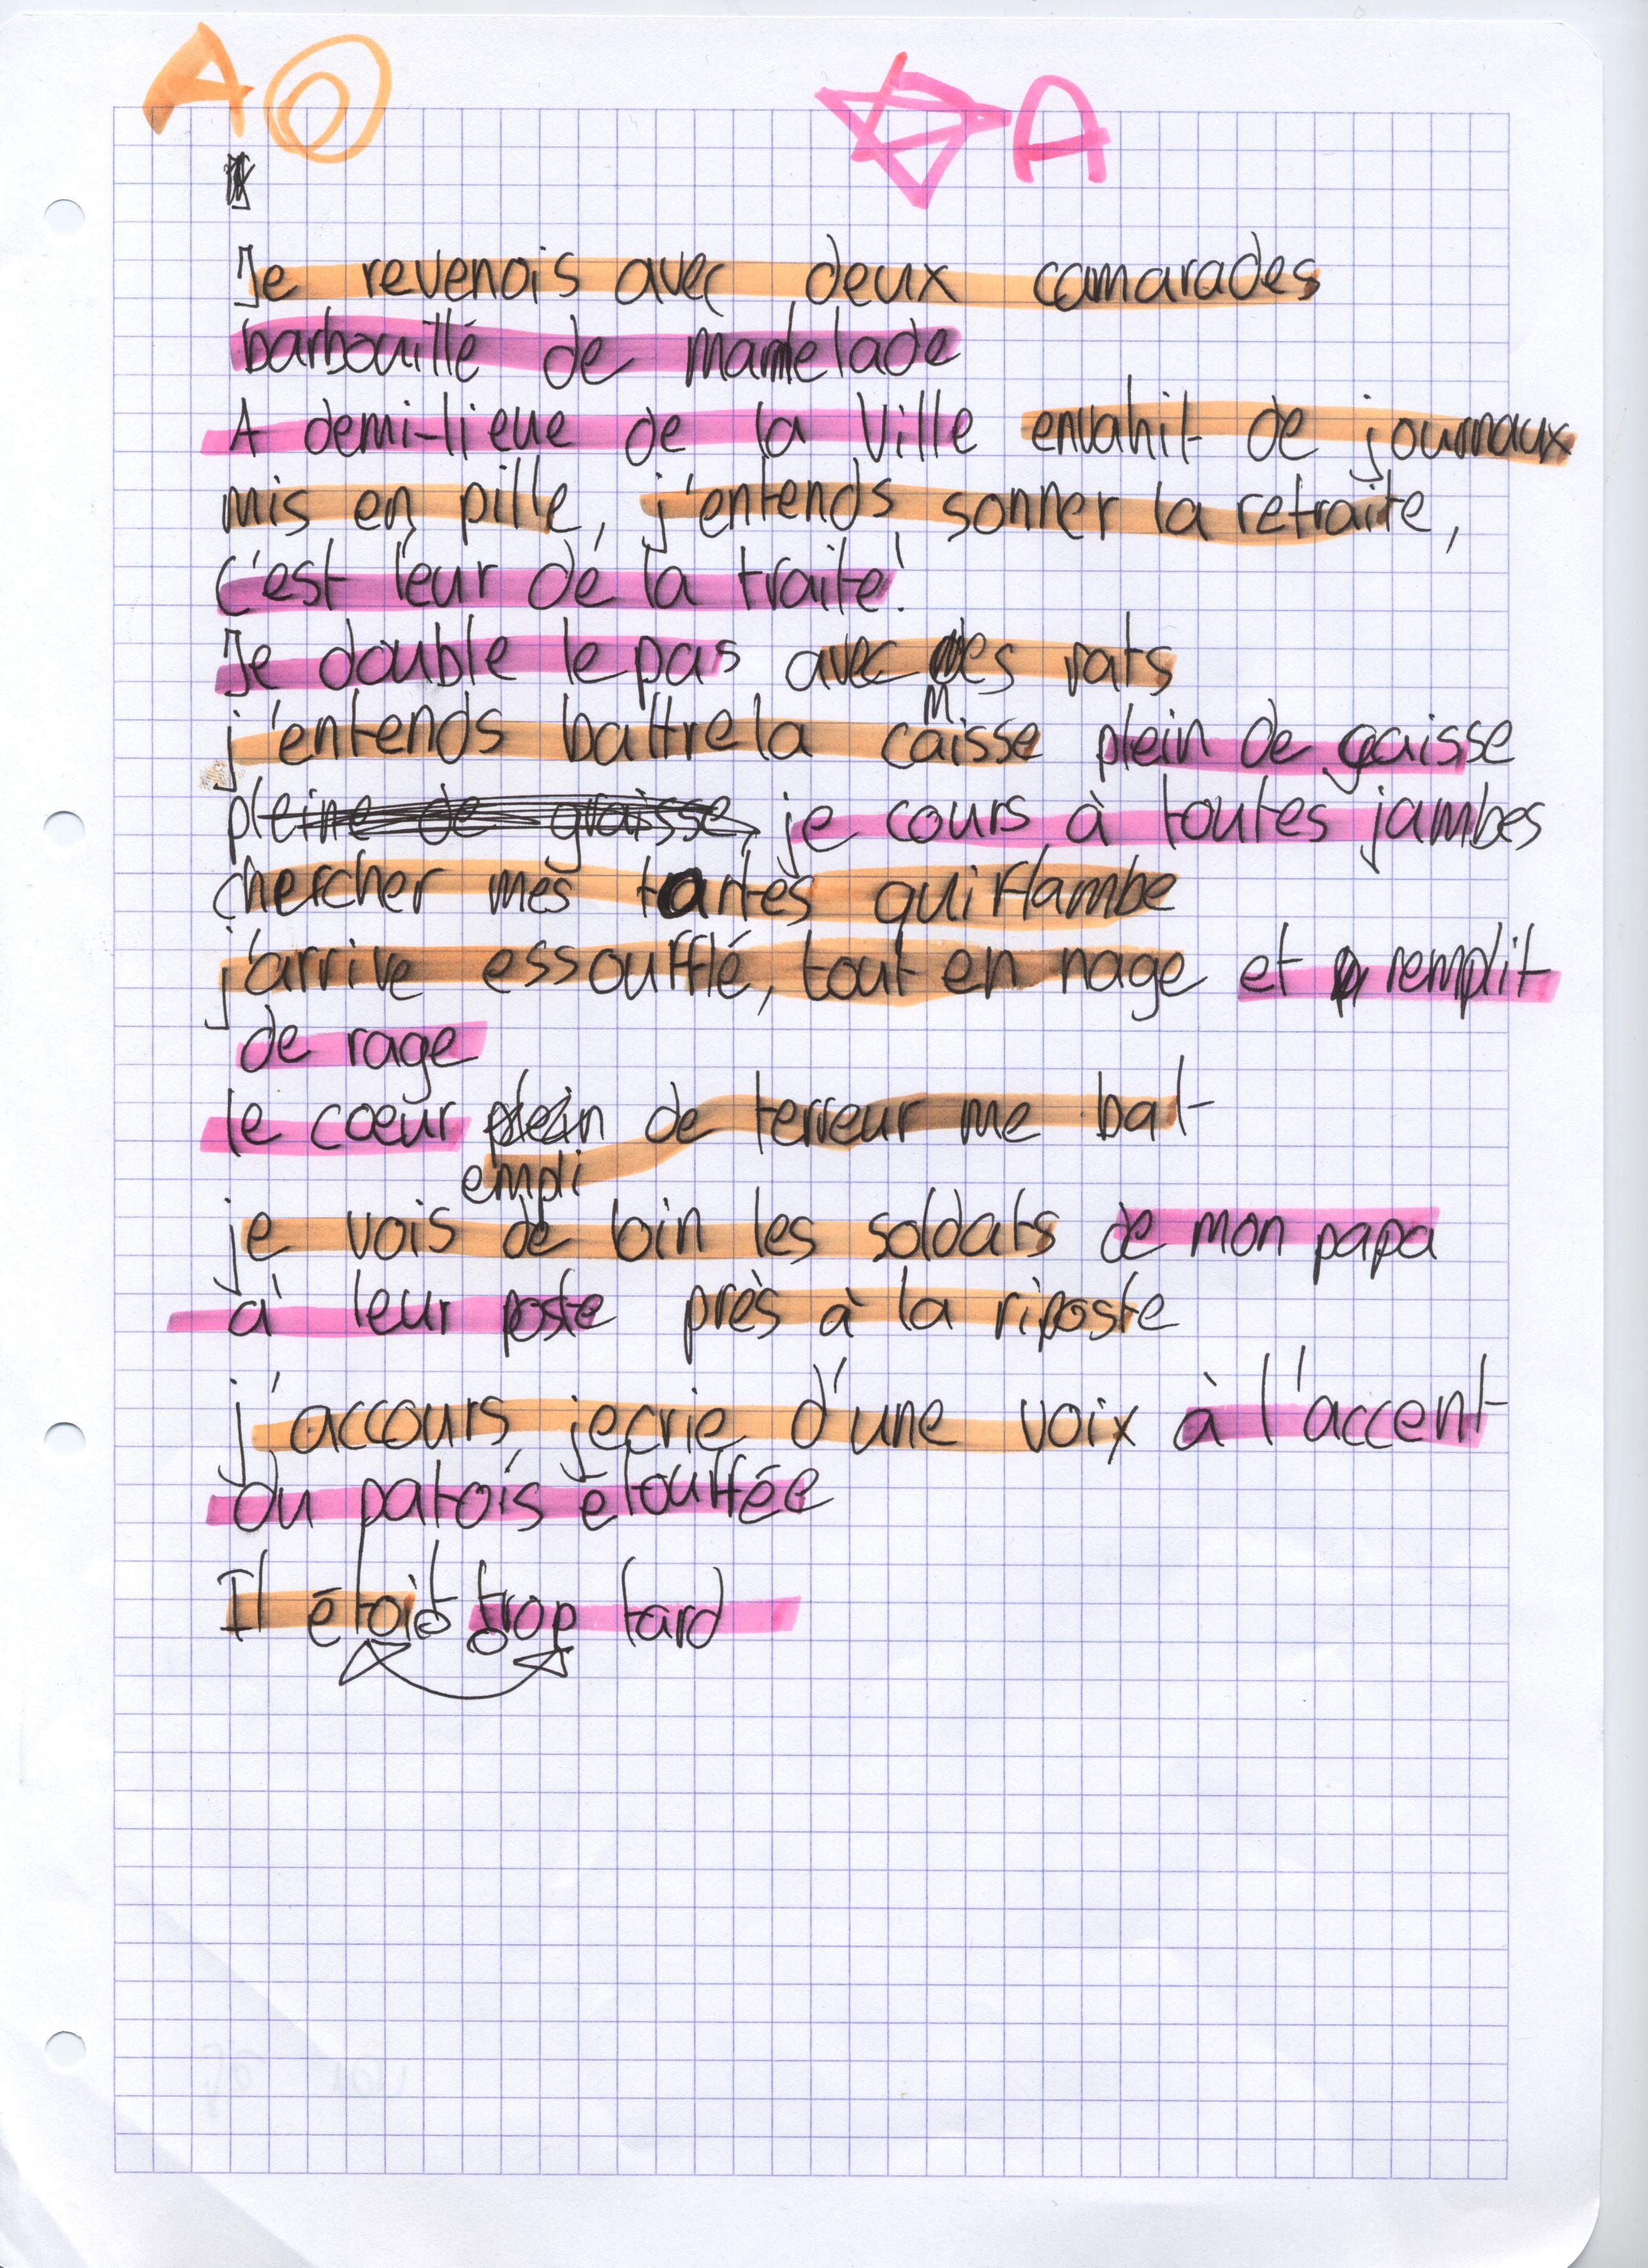 A A
Je revenois avec deux camarades
barbouillé de mamelade
A demi-lieue de la Ville envahit de journaux
mis en pille, j'entends sonner la retraite,
c'est leur de la traite!
Je double le pas avec mes rats
j'entends battre la caisse plein de gaisse
pleine de graisse, je cours à toutes jambes
chercher mes tartes qui flambe
j'arrive essoufflé, tout en nage et remplit
de rage
le cœur plein de terreur me bat
empli
je vois de loin les soldats de mon papa
à leur poste près à la riposte
j'accours, jecrie d'une voix à l'accent
du patois étouffée
Il étoit trop tard